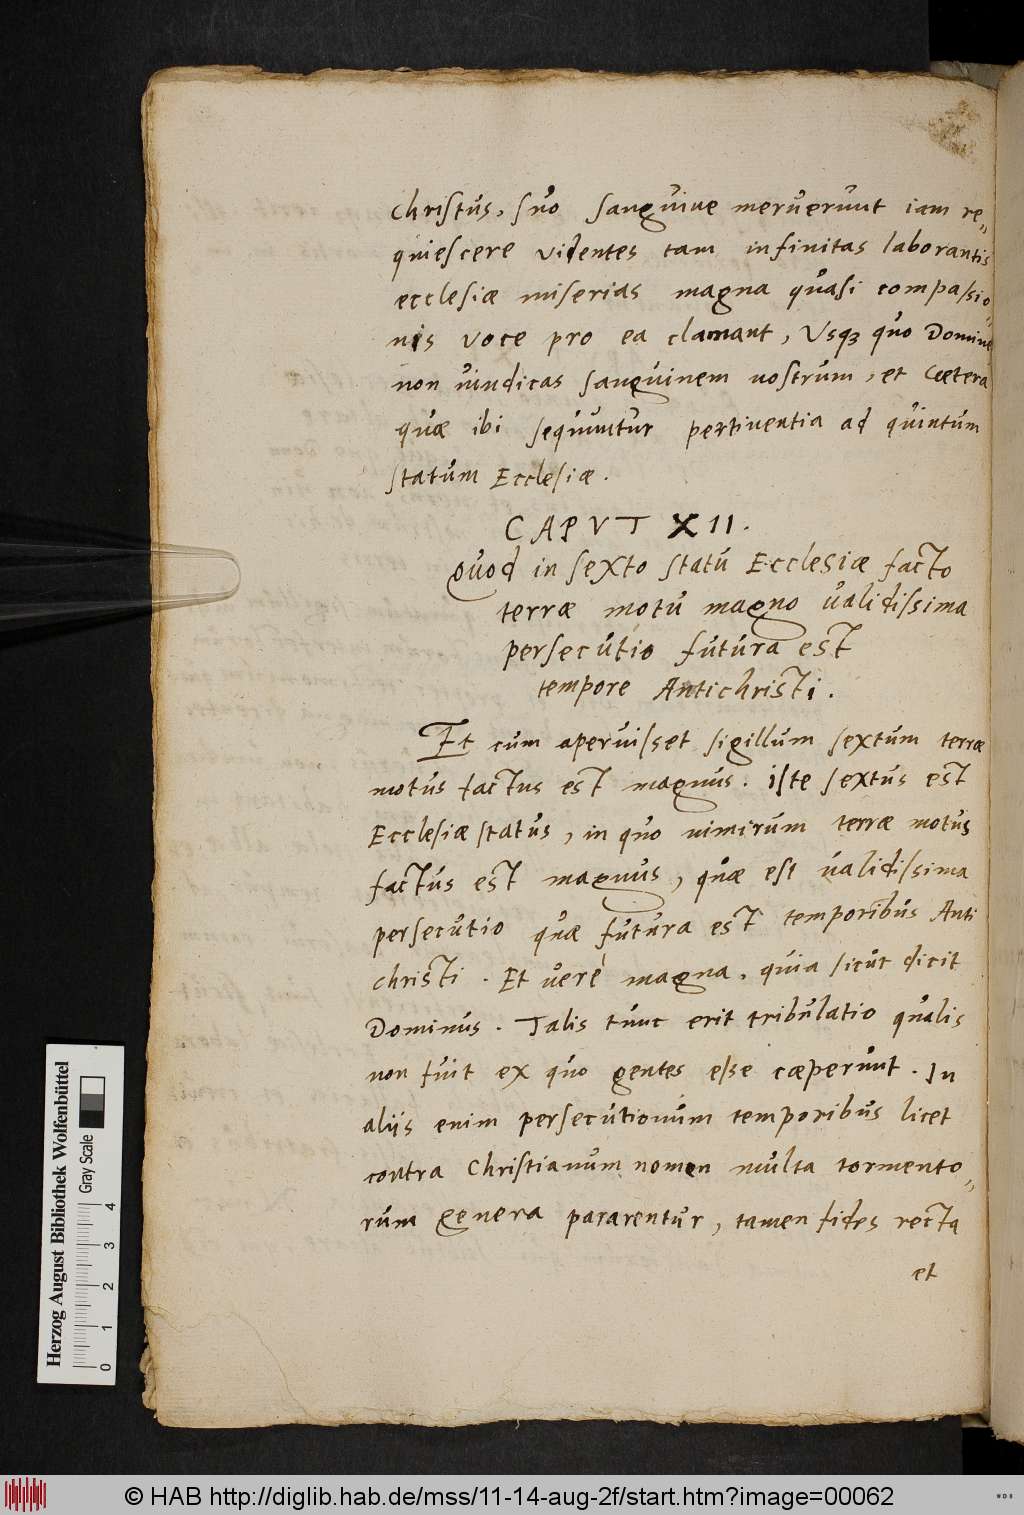 Christus, suo sanguine meruerunt iam re„
quiescere videntes tam infinitas laborantis
ecclesiæ miserias magna quasi compassio„
nis voce pro ea clamant, Usqꝫ quo Domine
non vindicas sanguinem nostrum, et Cætera
quæ ibi sequuntur pertinentia ad quintum
statum Ecclesiæ.
CAPVT XII.
Quod in sexto statu Ecclesiæ facto
terræ motu magno validissima
persecutio futura est
tempore Antichristi.
Et cum aperuisset sigillum sextum terræ
motus factus est magnus. iste sextus est
Ecclesiæ status, in quo nimirum terræ motus
factus est magnus, quæ est validissima
persecutio quæ futura est temporibus Anti
christi. Et verè magna, quia sicut dicit
Dominus. Talis tunc erit tribulatio qualis
non fuit ex quo gentes esse cæperunt. In
aliis enim persecutionum temporibus licet
contra Christianum nomen multa tormento„
rum genera pararentur, tamen fides recta
et
Herzog August Bibliothek Wolfenbüttel
Gray Scale
0 1 2 3 4
© HAB http://diglib.hab.de/mss/11-14-aug-2f/start.htm?image=00062